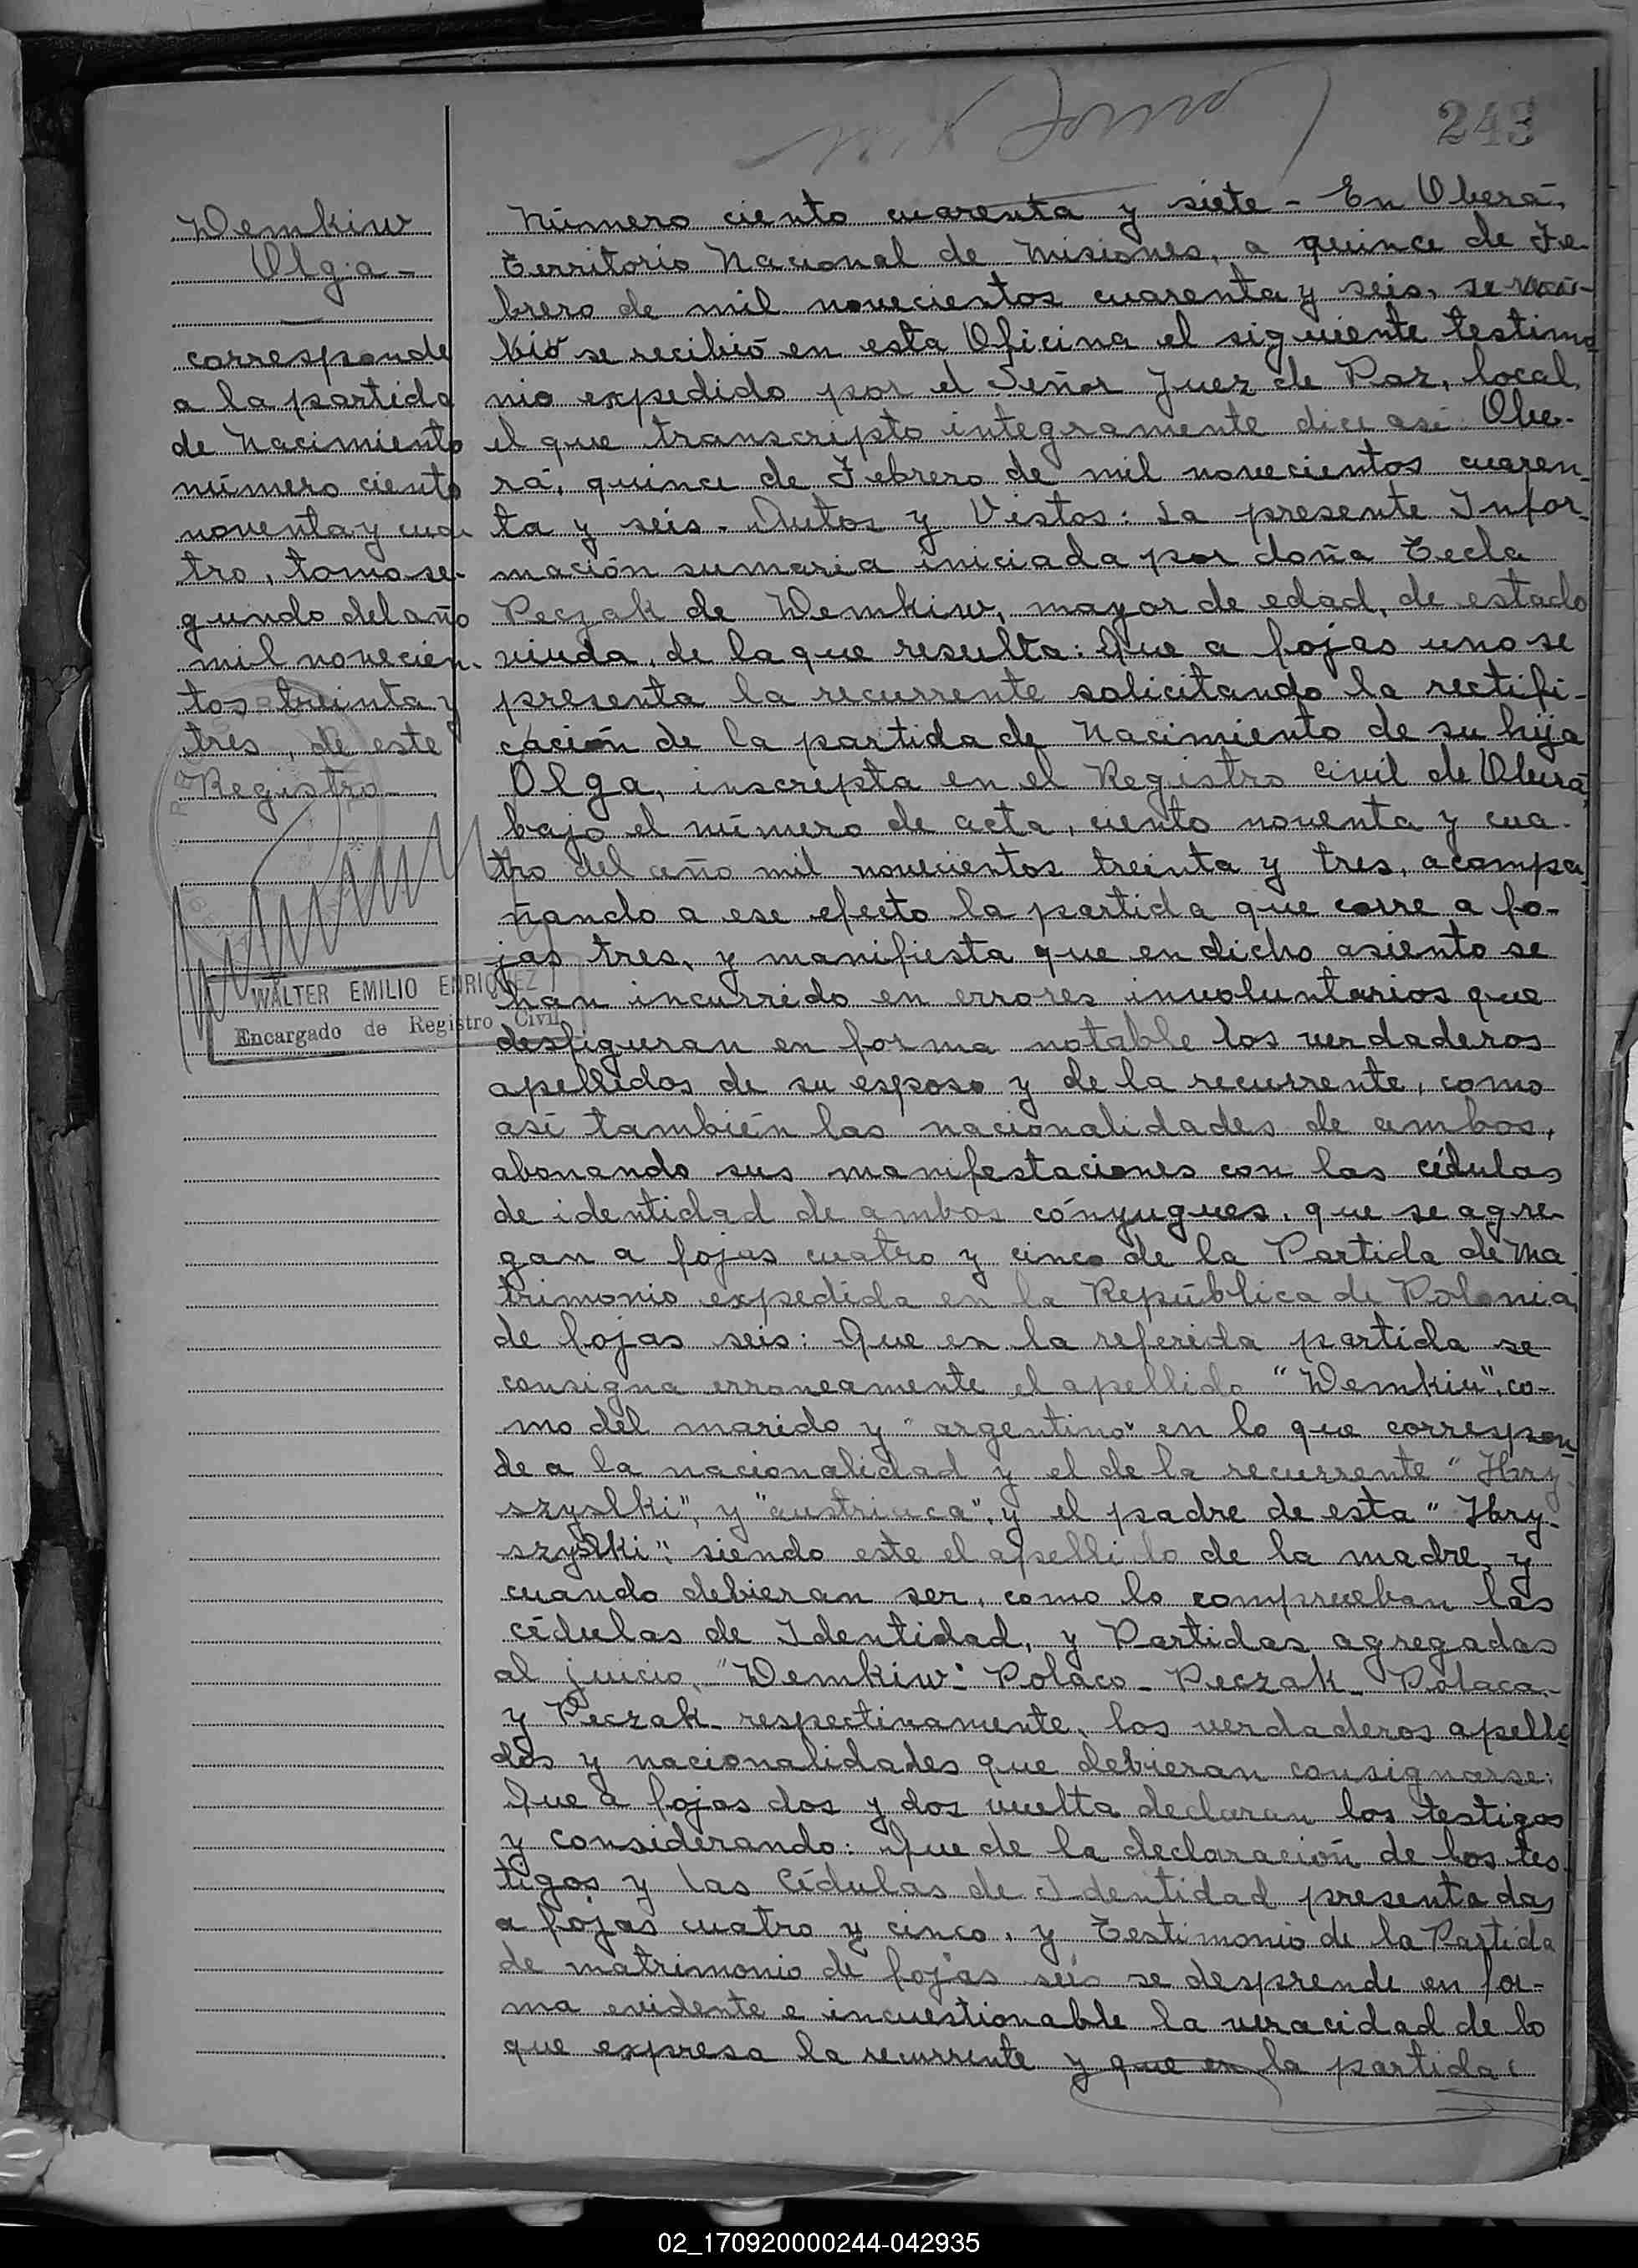 243
Wemkiw
Olga -
corresponde
a la partida
de Nacimiento
número ciento
noventa y cua
tro, tomo se-
gundo del año
mil novecien-
tos treinta y
tres, de este
Registro -
WALTER EMILIO ENRIQUEZ
Encargado de Registro Civil
Número ciento cuarenta y siete - En Oberá,
Territorio Nacional de Misiones, a quince de Fe-
brero de mil novecientos cuarenta y seis, se
bió se recibió en esta Oficina el siguiente testimo
nio expedido por el Señor Juez de Paz, local,
el que transcripto integramente dice asi: Obe-
rá, quince de Febrero de mil novecientos cuaren
ta y seis - Autos y Vistos: La presente Infor-
mación sumaria iniciada por doña Tecla
Peczak de Wemkiw, mayor de edad, de estado
viuda, de la que resulta: Que a fojas uno se
presenta la recurrente solicitando la rectifi-
cación de la partida de Nacimiento de su hija
Olga, inscripta en el Registro Civil de Oberá,
bajo el número de acta, ciento noventa y cua-
tro del año mil novecientos treinta y tres, acompa
ñando a ese efecto la partida que corre a fo-
jas tres, y manifiesta que en dicho asiento se
han incurrido en errores involuntarios que
desfiguran en forma notable los verdaderos
apellidos de su esposo y de la recurrente, como
asi también las nacionalidades de ambos,
abonando sus manifestaciones con las cédulas
de identidad de ambos cónyugues, que se agre
gan a fojas cuatro y cinco de la Partida de Ma
trimonio expedida en la República de Polonia,
de fojas seis: Que en la referida partida se
consigna erroneamente el apellido "Wemkiu", co-
mo del marido y "argentino" en lo que correspon
de a la nacionalidad y el de la recurrente "Hry
szyslki", y "austriaca", y el padre de esta "Hry-
szyslki", siendo este el apellido de la madre, y
cuando debieran ser, como lo comprueban las
cédulas de Identidad, y Partidas agregadas
al juicio, "Wemkiw" Polaco - Peczak - Polaca -
y Peczak - respectivamente, los verdaderos apelli
dos y nacionalidades que debieran consignarse:
Que a fojas dos y dos vuelta declaran los testigos
y considerando: Que de la declaración de los tes-
tigos y las Cédulas de Identidad presentadas
a fojas cuatro y cinco, y Testimonio de la Partida
de matrimonio de fojas seis se desprende en for-
ma evidente e incuestionable la veracidad de lo
que expresa la recurrente y que en la partida
02_170920000244-042935